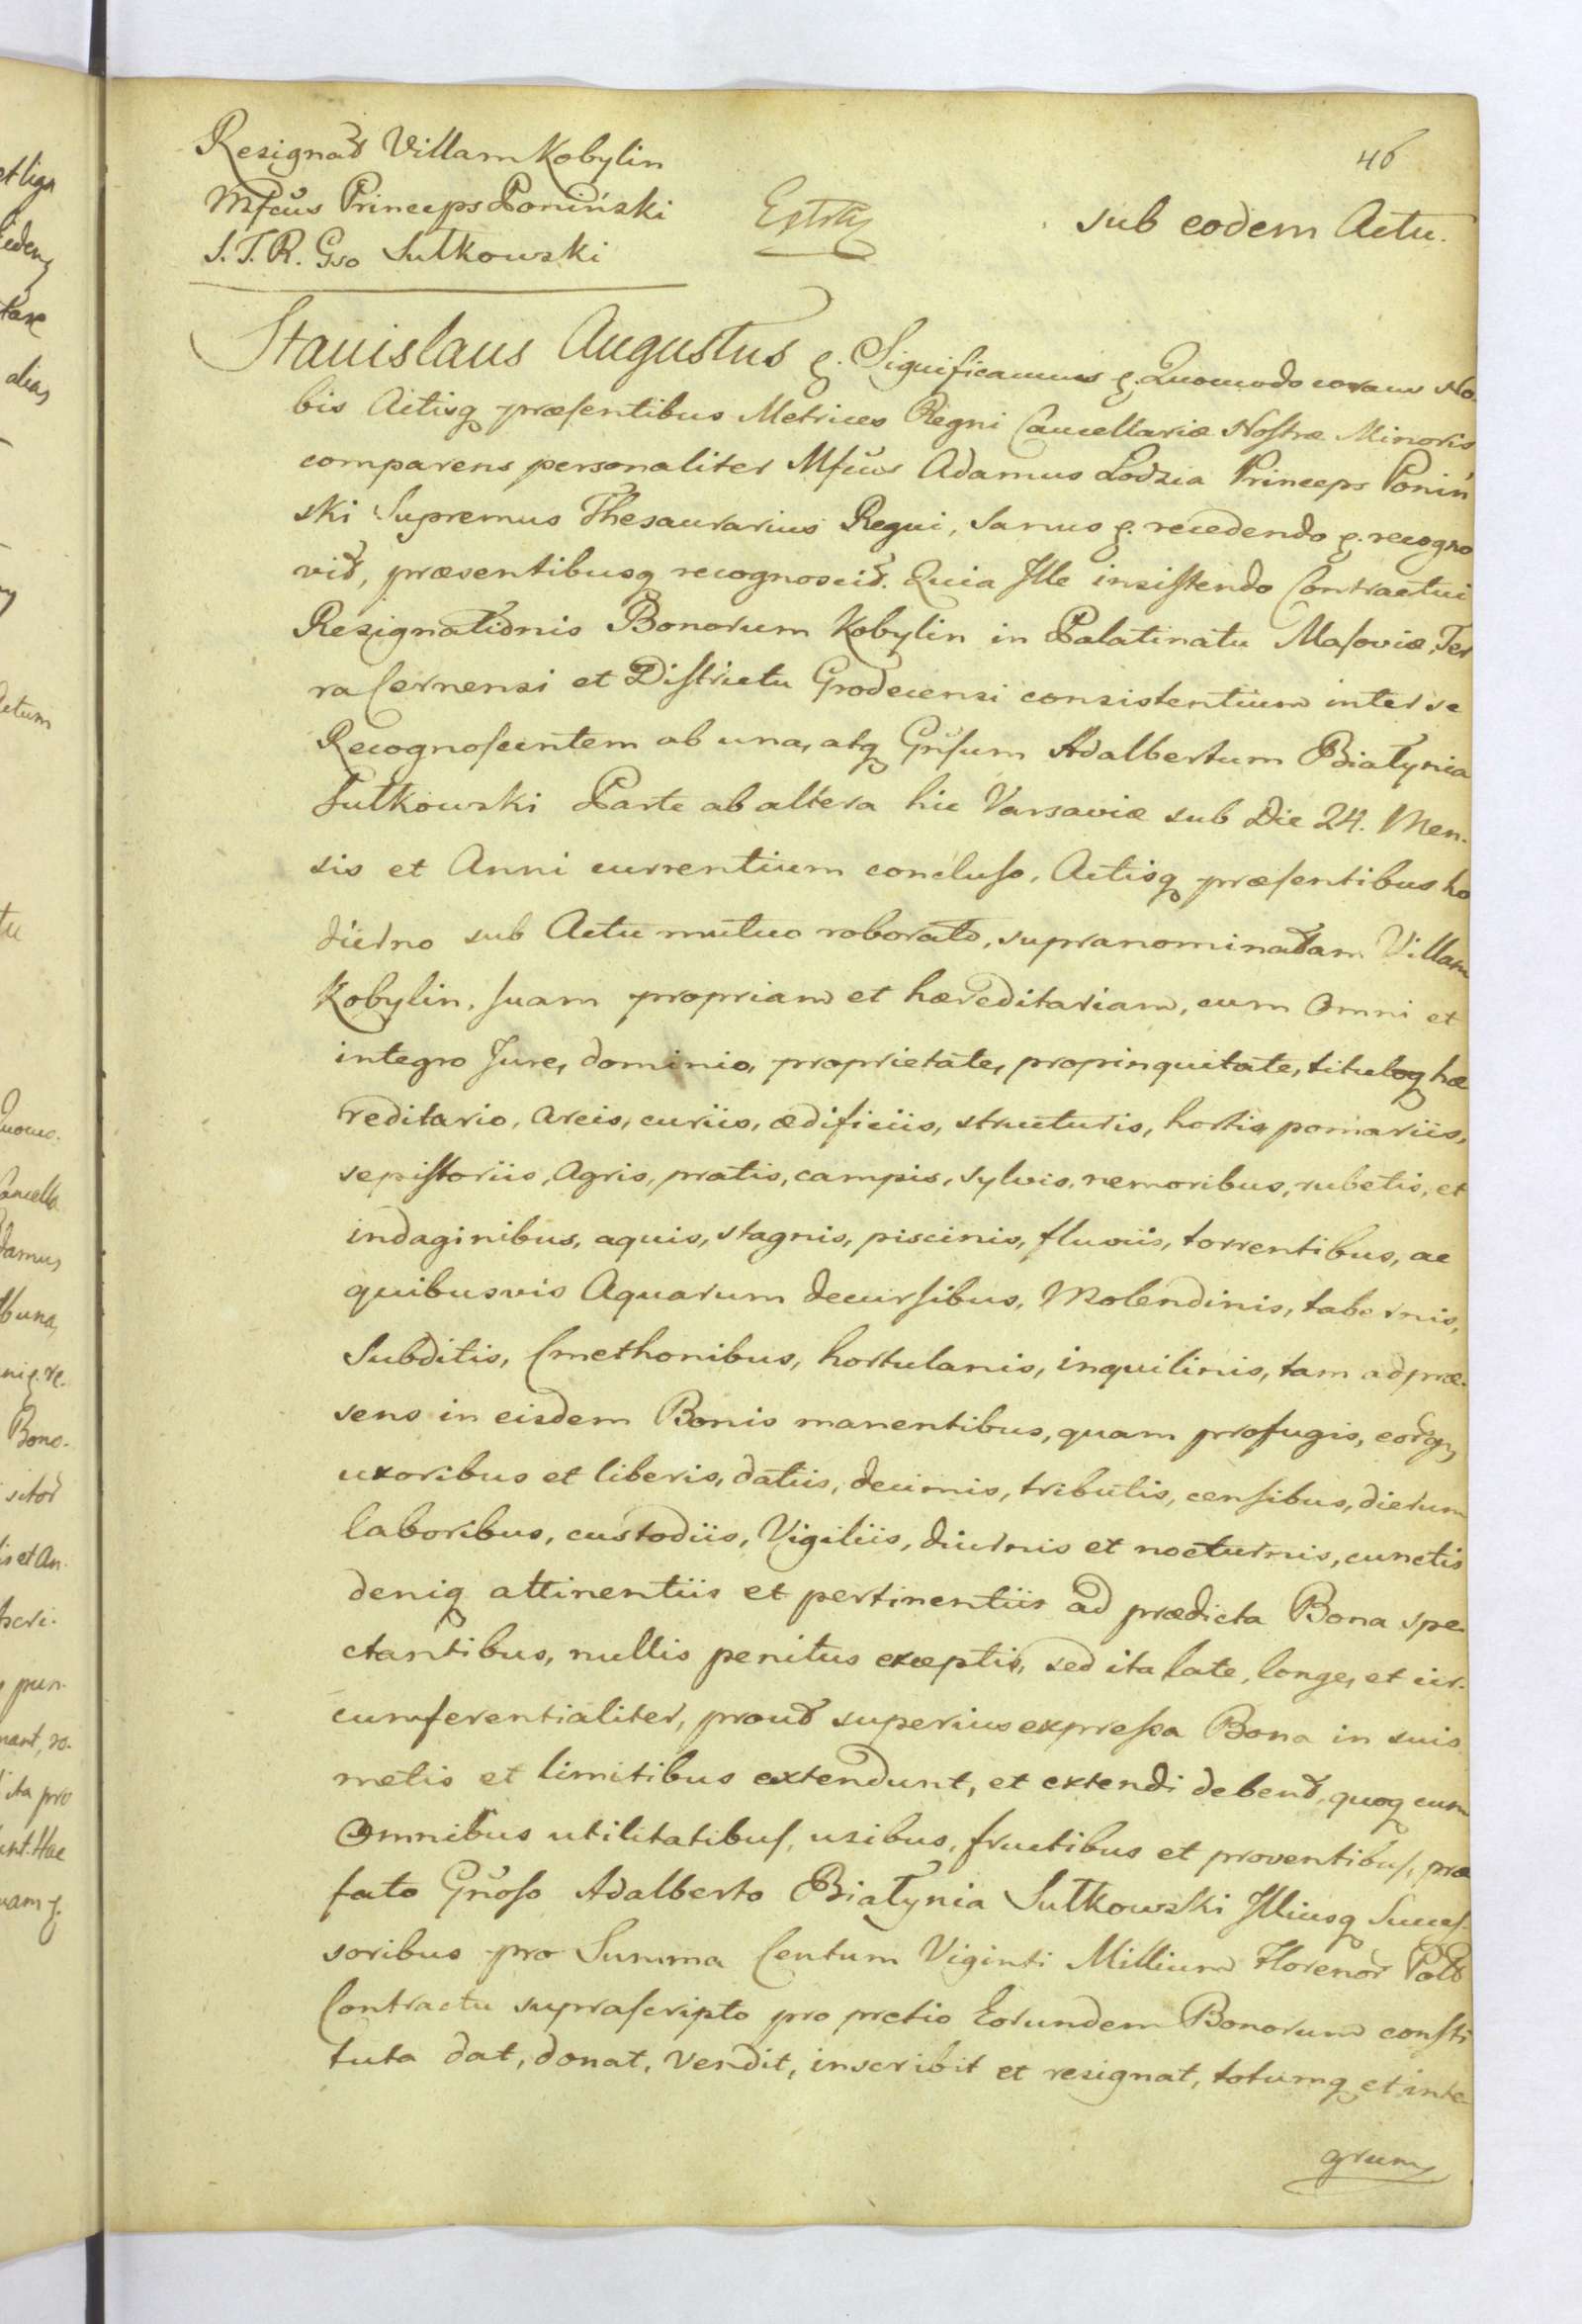 46
Resignat Villam Kobylin
Mfcus Princeps Poniński
S. T. R. Gso Sutkowski
sub eodem Actu.
Stanislaus Augustus &. Significamus &. Quomodo coram No-
bis Actisq præsentibus Metrices Regni Cancellariæ Nostræ Minoris
comparens personaliter Mfcus Adamus Lodzia Princeps Poniń
ski Supremus Thesaurarius Regni, Sanus &. recedendo &. recogno
vit, præsentibusq recognoscit. Quia Ille insistendo Contractui
Resignationis Bonorum Kobylin in Palatinatu Masoviæ, Ter
ra Cernensi et Districtu Grodecensi consistentium inter se
Recognoscentem ab una, atq Gnsum Adalbertum Białynia
Sutkowski Parte ab altera hic Varsaviæ sub Die 24. Men-
sis et Anni currentium concluso, Actisq præsentibus ho
dierno sub Actu mutuo roborato, supranominatam Villam
Kobylin, suam propriam et hæreditariam, cum Omni et
integro Jure, dominio, proprietate, propinquitate, tituloq hæ
reditario, areis, curiis, ædificiis, structuris, hortis pomariis,
sepistoriis, Agris, pratis, campis, sylvis, nemoribus, rubetis, et
indaginibus, aquis, stagnis, piscinis, fluviis, torrentibus, ac
quibusvis Aquarum decursibus, Molendinis, tabernis,
Subditis, Cmethonibus, hortulanis, inquilinis, tam ad præ-
sens in eisdem Bonis manentibus, quam profugis, eorq,
uxoribus et liberis, datiis, decimis, tributis, censibus, dierum
laboribus, custodiis, Vigiliis, diurnis et nocturnis, cunctis
deniq attinentiis et pertinentiis ad prædicta Bona spe-
ctantibus, nullis penitus exceptis, sed ita late, longe, et cir-
cumferentialiter, prout superius expressa Bona in suis
metis et limitibus extendunt, et extendi debent, quoq cum
Omnibus utilitatibus, usibus, fructibus et proventibus, præ
fato Gnoso Adalberto Białynia Sutkowski Illiusq Succes-
soribus pro Summa Centum Viginti Millium Florenor Polo
Contractu suprascripto pro pretio Eorundem Bonorum consti
tuta dat, donat, vendit, inscribit et resignat, totumq et inte-
grum